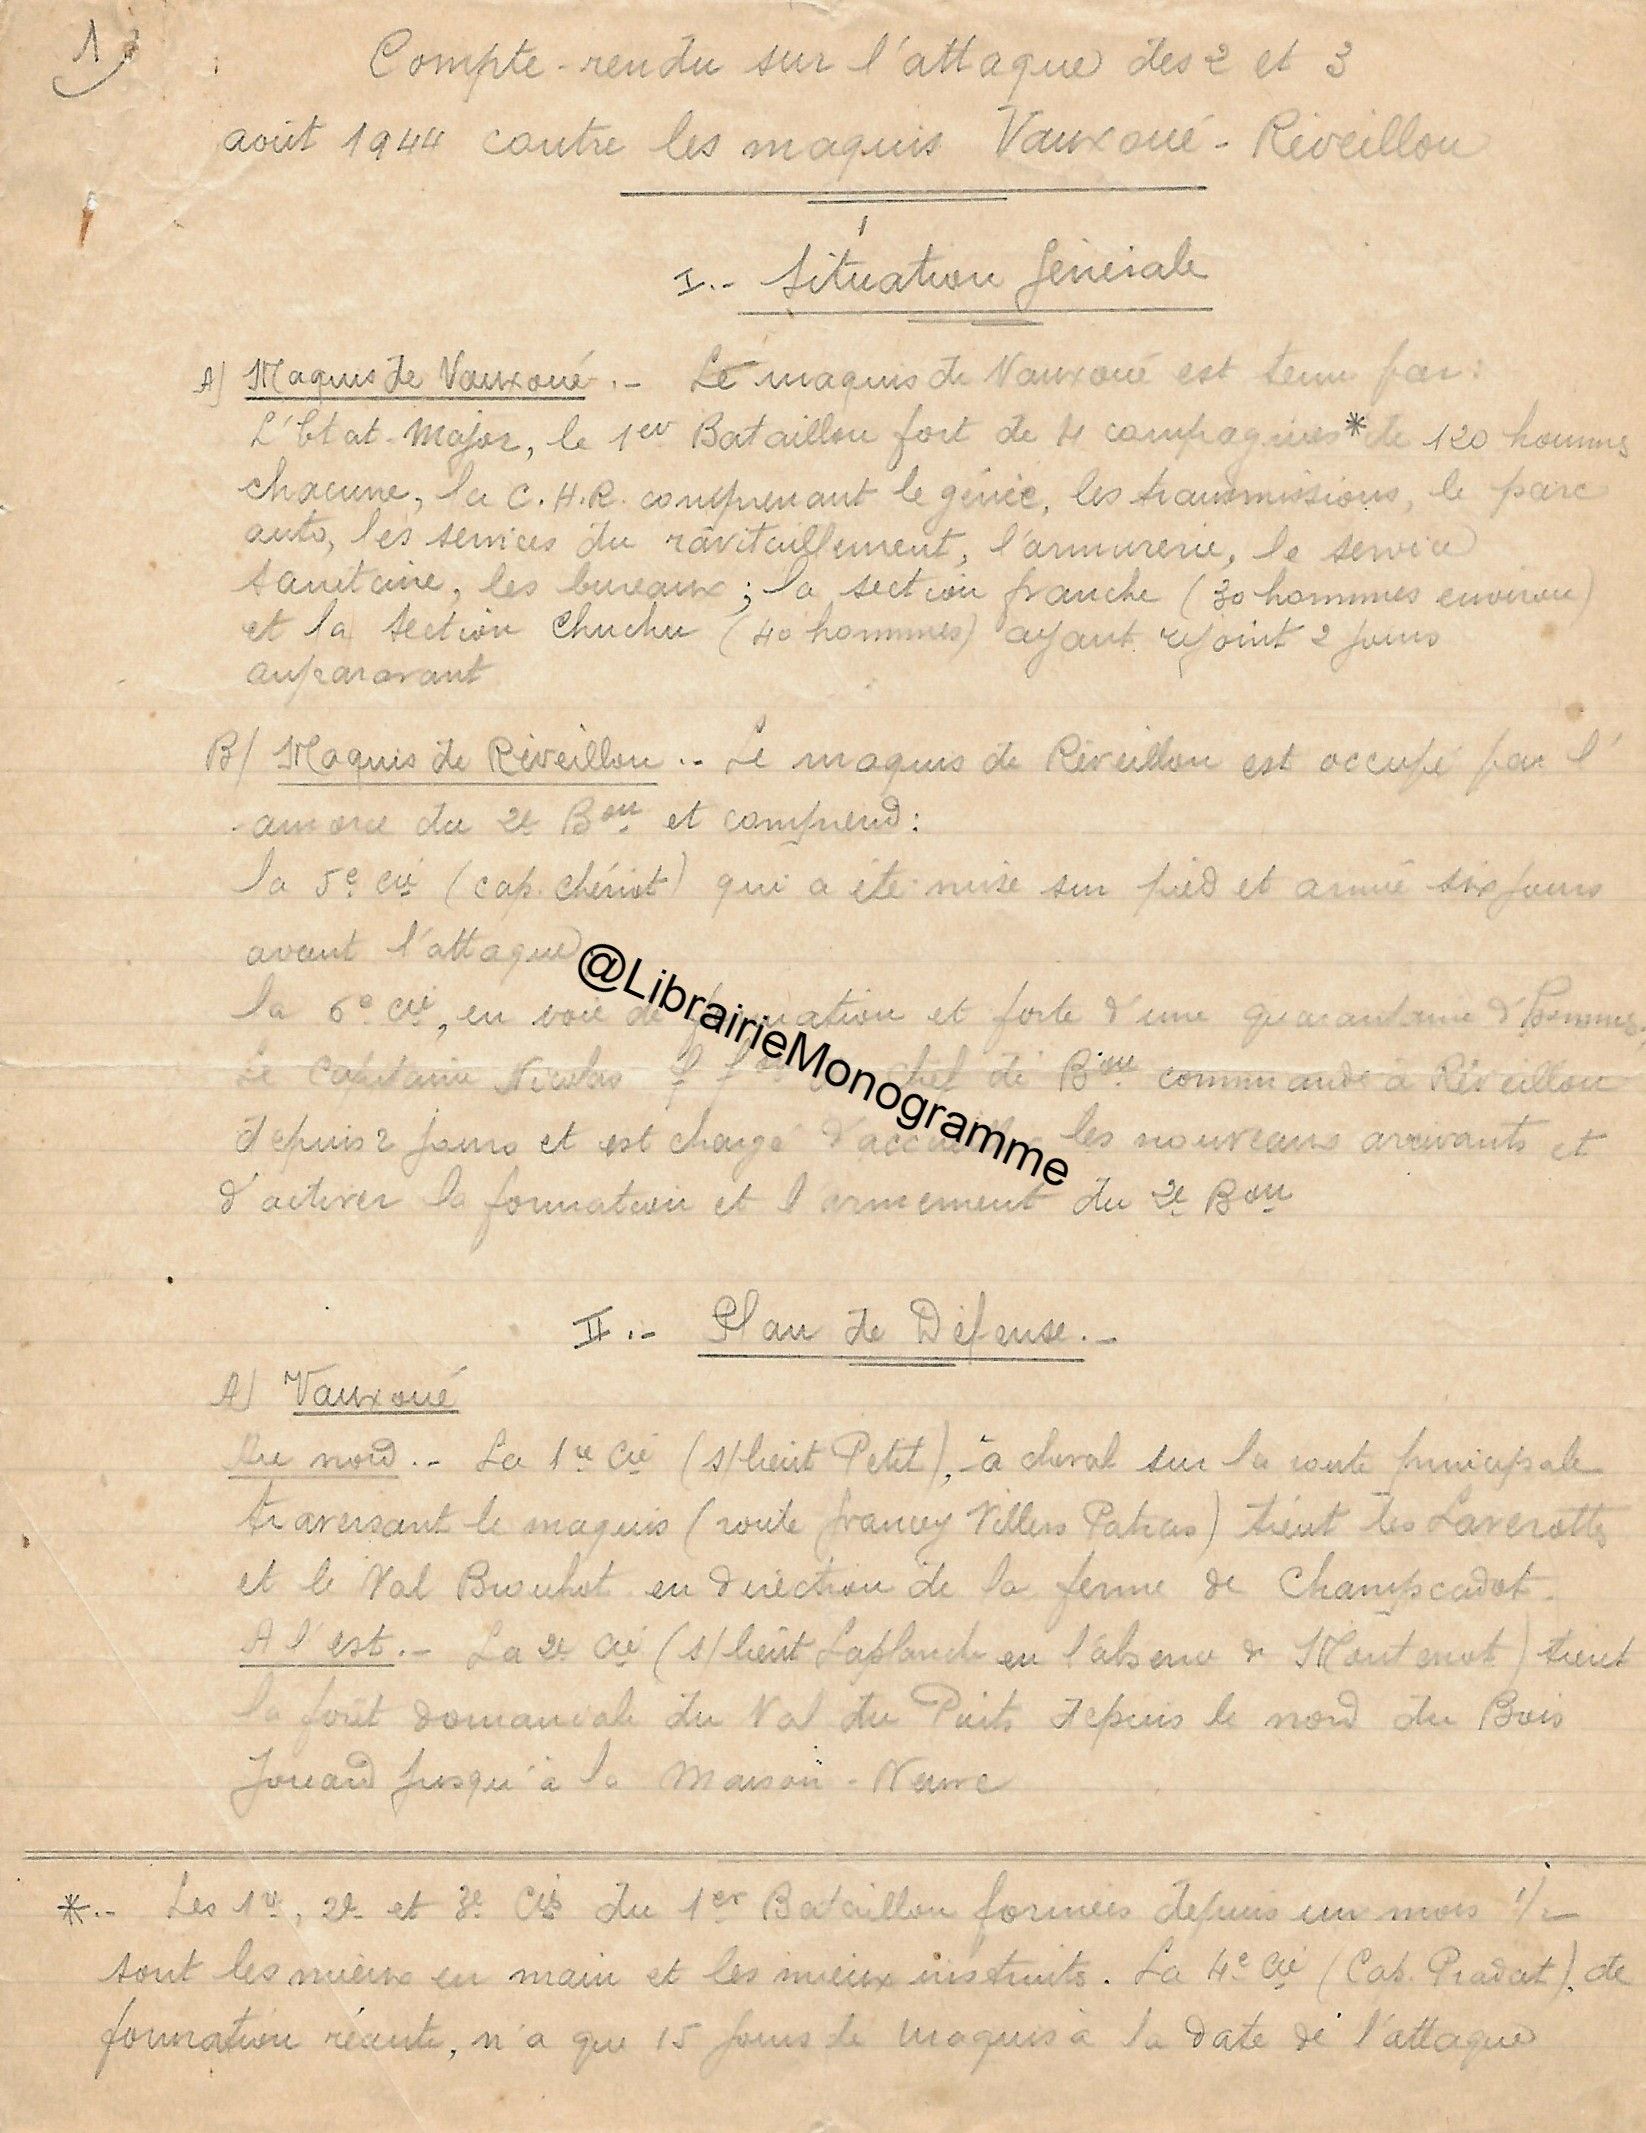 1
Compte-rendu sur l'attaque des 2 et 3
août 1944 contre les maquis Vauxoué - Réveillon
I.- Situation Générale
A) Maquis de Vauxoué .- Le maquis de Vauxoué est tenu par:
L'Etat-Major, le 1er Bataillon fort de 4 compagnies * de 120 hommes
chacune, la C.H.R. comprenant le génie, les transmissions, le parc
auto, les services du ravitaillement, l'armurerie, le service
sanitaire, les bureaux ; la section franche (30 hommes environ)
et la section Chuchu (40 hommes) ayant rejoint 2 jours
auparavant
B/ Maquis de Réveillon .- Le maquis de Réveillon est occupé par l'
amorce du 2e Bon et comprend:
la 5e Cie (cap. Chériot) qui a été mise sur pied et armée six jours
avant l'attaque
la 6e Cie, en voie de formation et forte d'une quarantaine d'hommes,
Le Capitaine Nicolas chef de Bon commande à Réveillon
depuis 2 jours et est chargé d'accueillir les nouveaux arrivants et
d'activer la formation et l'armement du 2e Bon
@LibrairieMonogramme
II.- Plan de Défense.-
A) Vauxoué
Au nord .- La 1re Cie (s/lieut Petit), à cheval sur la route principale
traversant le maquis (route Grancey Villers Patras) tient les Laverottes
et le Val Brouhot en direction de la ferme de Champcadot.
A l'est .- La 2e Cie (s/lieut Laplanche en l'absence de Montenot) tient
la forêt domaniale du Val du Puits depuis le nord du Bois
Jouard jusqu'à la Maison-Neuve
* .- Les 1re, 2e et 3e Cies du 1er Bataillon formées depuis un mois 1/2
sont les mieux en main et les mieux instruits. La 4e Cie (Cap. Pradat), de
formation récente, n'a que 15 jours de maquis à la date de l'attaque